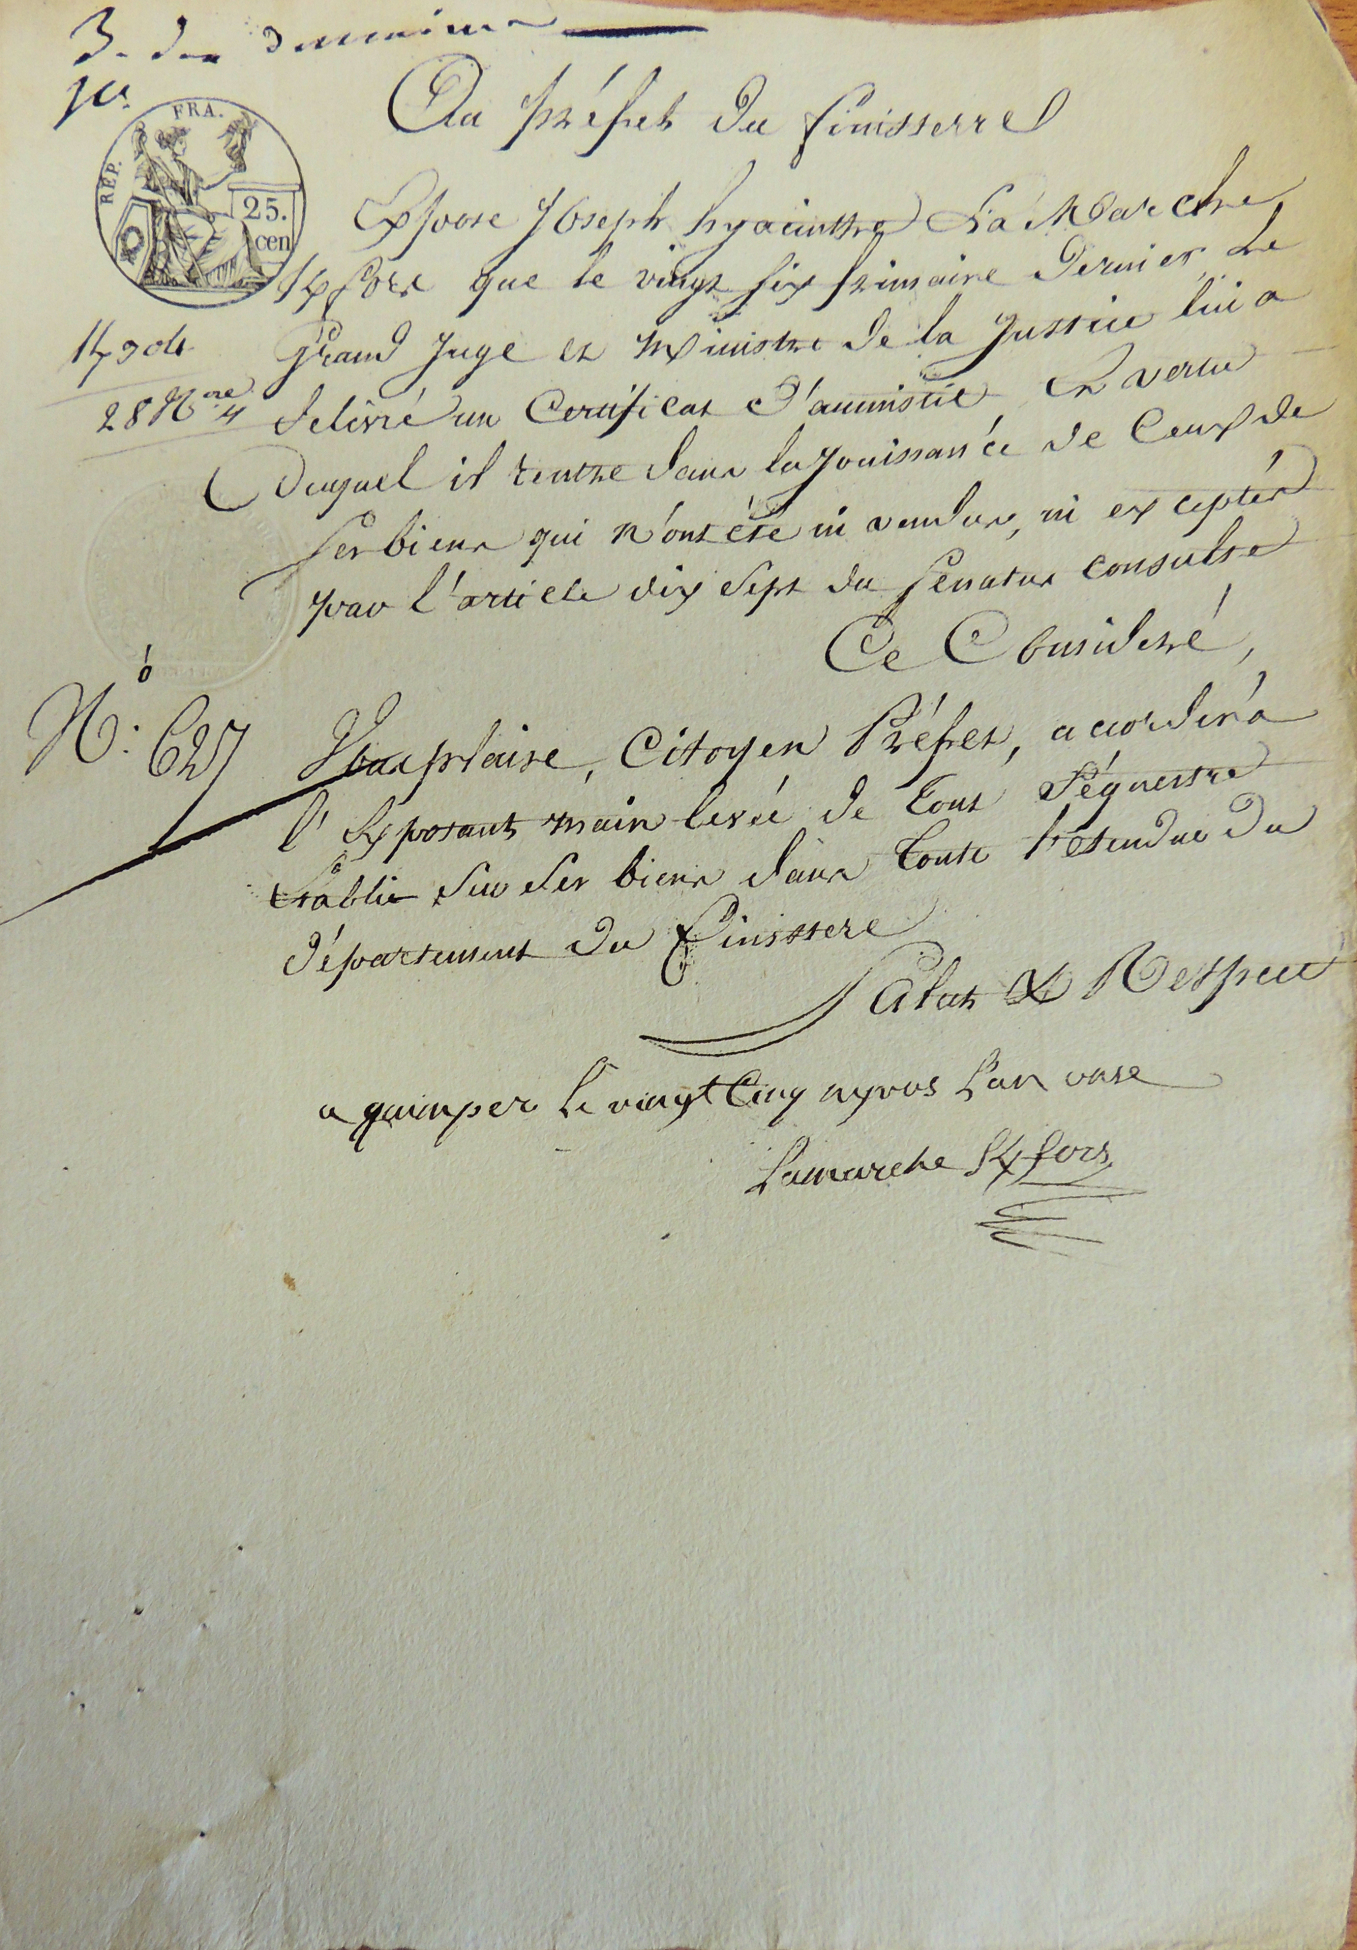 3e don domaines
Au préfet du finisterre
REP. FRA.
25.
cen
Expose Joseph hyacinthe La Marche
Kfors que le vingt six frimaire dernier Le
Grand Juge et Ministre de la Justice lui a
delivré un Certificat d'amnistie En vertu
28 Nore
Duquel il rentre dans la jouissance de Ceux de
ses biens qui n'ont été ni vendus, ni exceptés
par l'article dix Sept du Senatus Consulte
Ce Considéré,
N.o 627
Vous plaise, Citoyen Préfet, accorder a
l'Exposant main levée de tout Séquestre
établi sur Ses biens dans toute l'etendue du
département du Finisstere
Salut & Respect
a quimper le vingt Cinq nyvos l'an onse
Lamarche Kfors